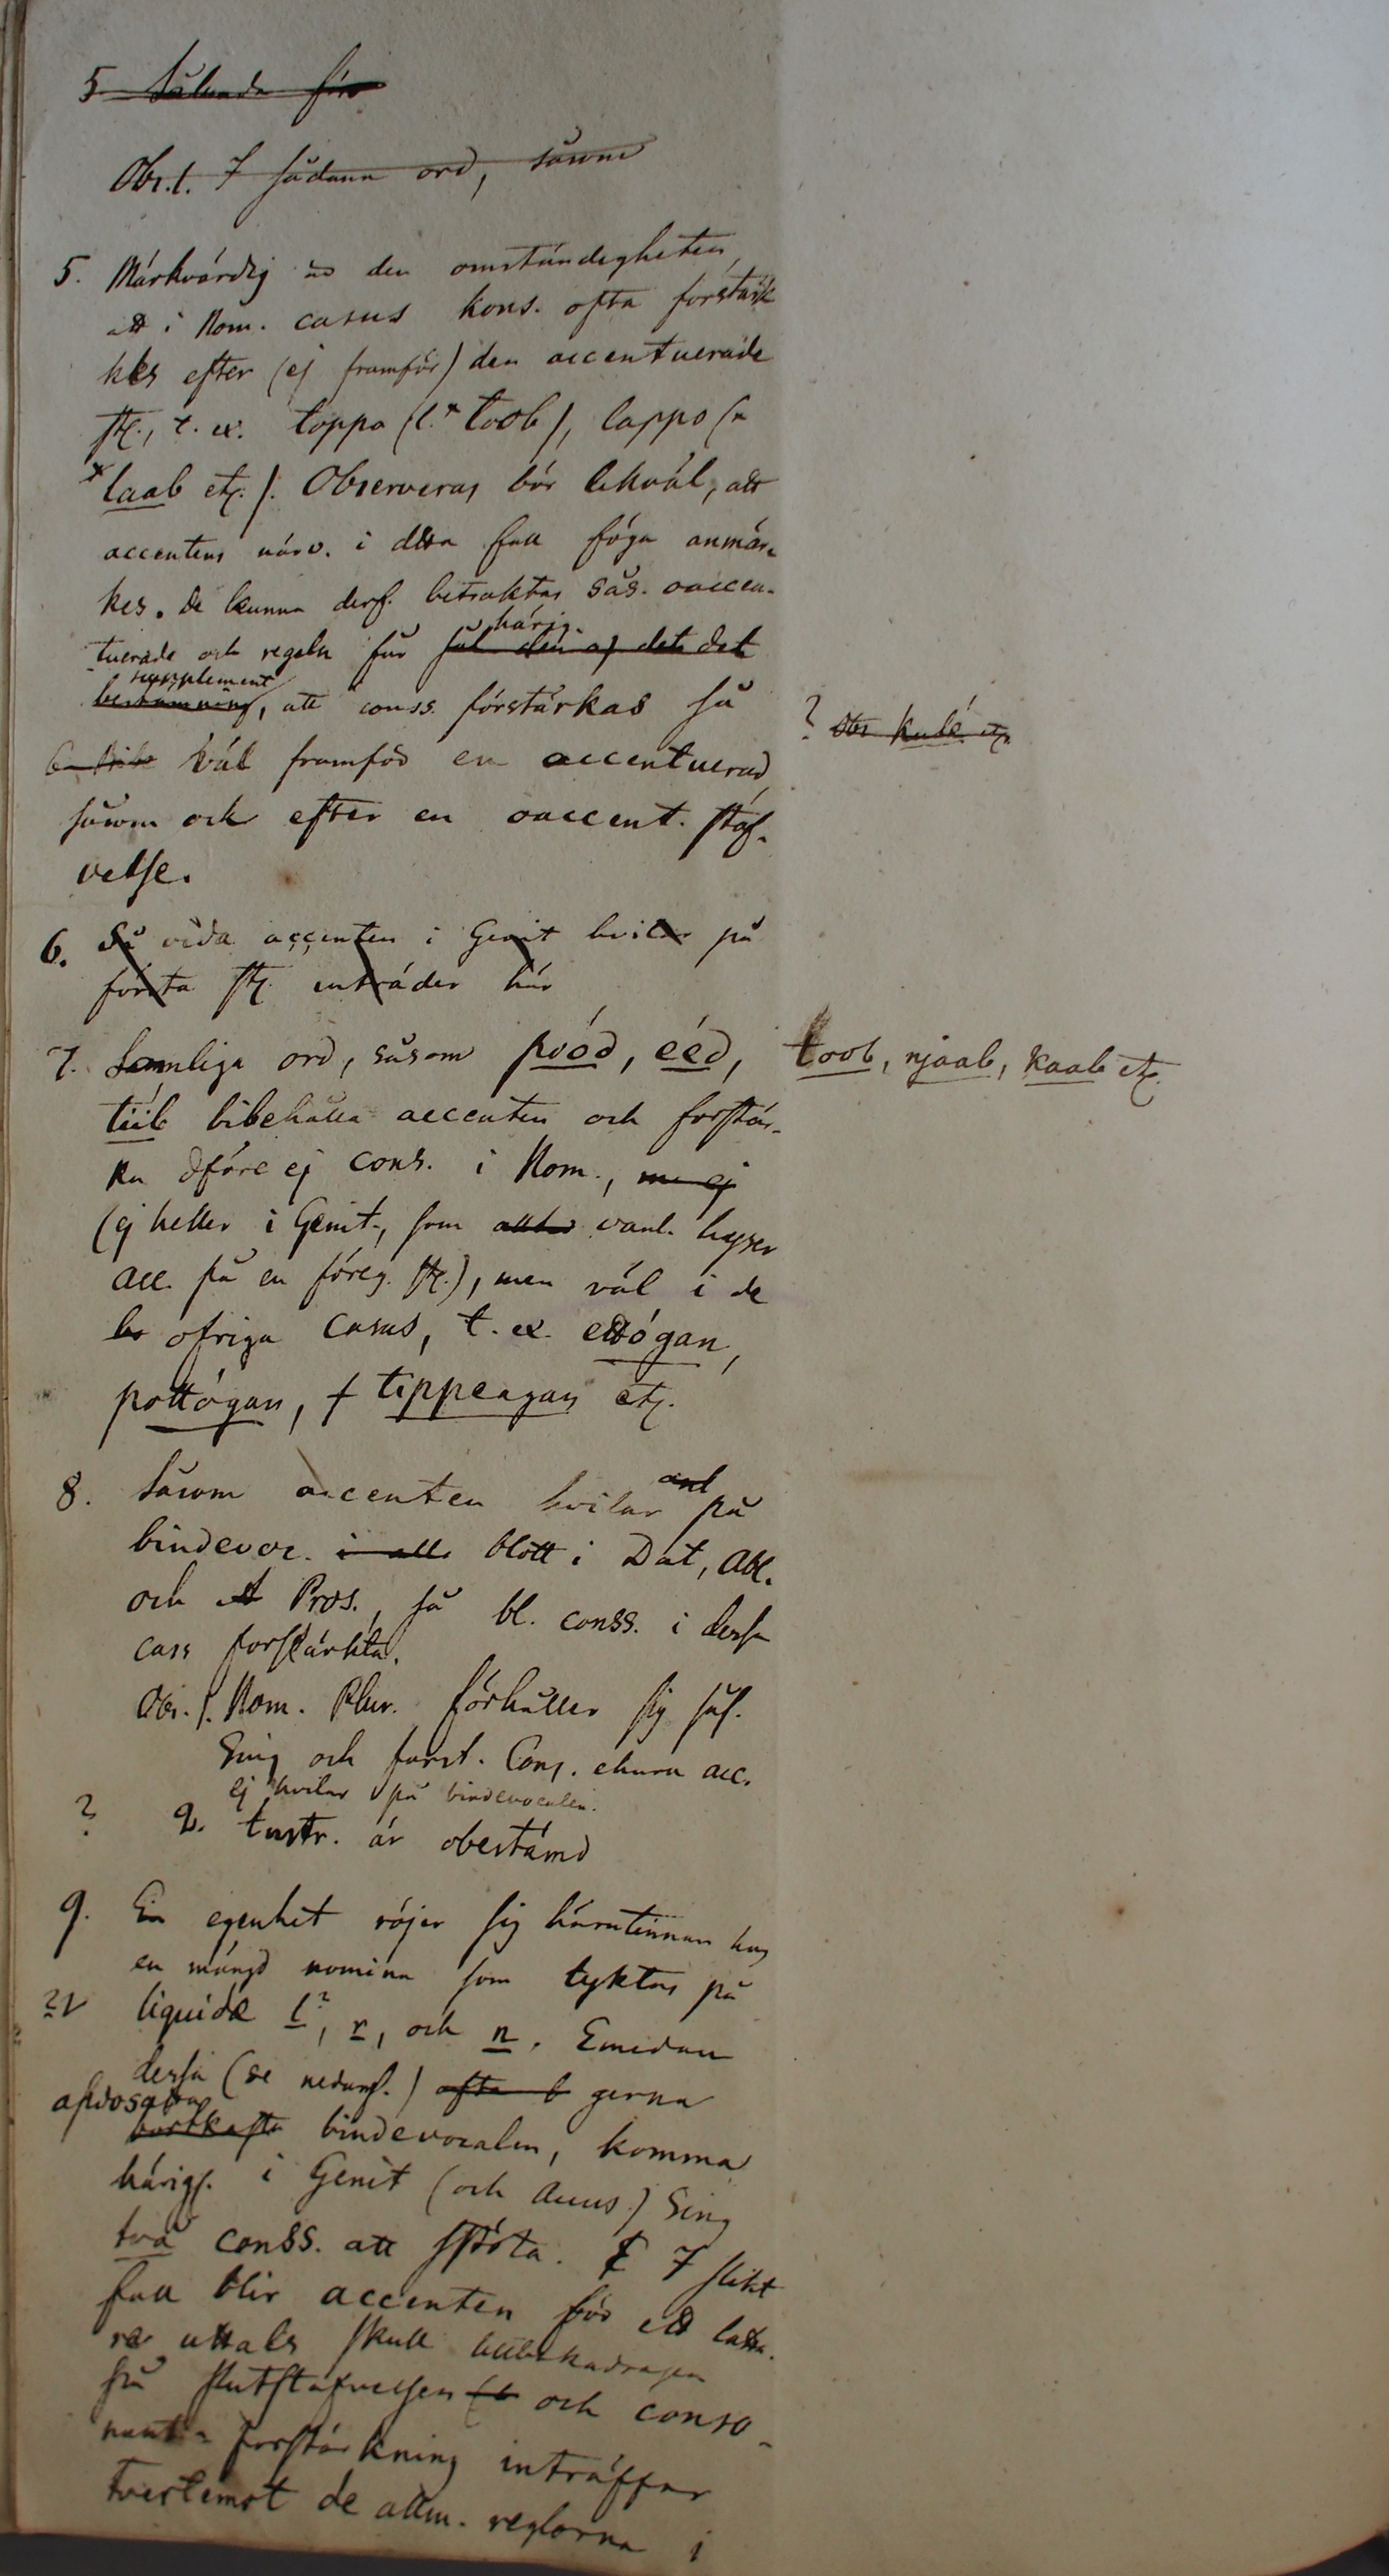 5. Sålunda för
Obs. 1. I sådana ord, såsom
5. Märkvärdig är den omständigheten,
att i Nom. casus kons. ofta förstärk
kes efter (ej framför) den accentuerade
st., t. ex. toppa (l. * toob), lappo (
* laab etc.). Observeras bör likväl, att
accentens närv. i detta fall föga anmär-
kes. De kunna derf. betraktas sås. oaccen-
tuerade och regeln får härig.
supplement
bestämning, att conss. förstärkas så
väl framför en accentuerad,
såsom och efter en oaccent. staf-
velse.
? obs kulé etc
6. Så vida accenten i Genit hvilar på
första st. inträder här
7. Somliga ord, såsom póód, ééd, toob, njaab, kaab etc.
tiib bibehålla accenten och förstär-
ka dföre ej cons. i Nom., men ej
(ej heller i Genit., som vanl. hyser
acc. på en föreg. st.), men väl i de
öfriga casus, t. ex. ettógan,
pottógan, † tippeagan etc.
8. Såsom accenten hvilar på
bindevoc. i alla blott i Dat, Abl.
och Pros., så bl. conss. i dessa
cass förstärkta.
Obs. 1. Nom. Plur. förhåller sig såf.
Sing och först. Cons. ehuru acc.
ej hvilar på bindevocalen.
? 2. Instr. är obestämd
9. En egenhet röjer sig härutinnan hos
en mängd nomina som lyktas på
liquidæ l?, r, och n. Emedan
dessa (se nedanf.) ofta gerna
bortkasta bindevocalen, komma
härigf. i Genit (och Accus) Sing
två conss. att stöta. I slikt
fall blir accenten för ett latta-
re uttals skull
på slutstafvelsen och conso-
nant-förstärkning inträffar
tvertemot de allm. reglorna i